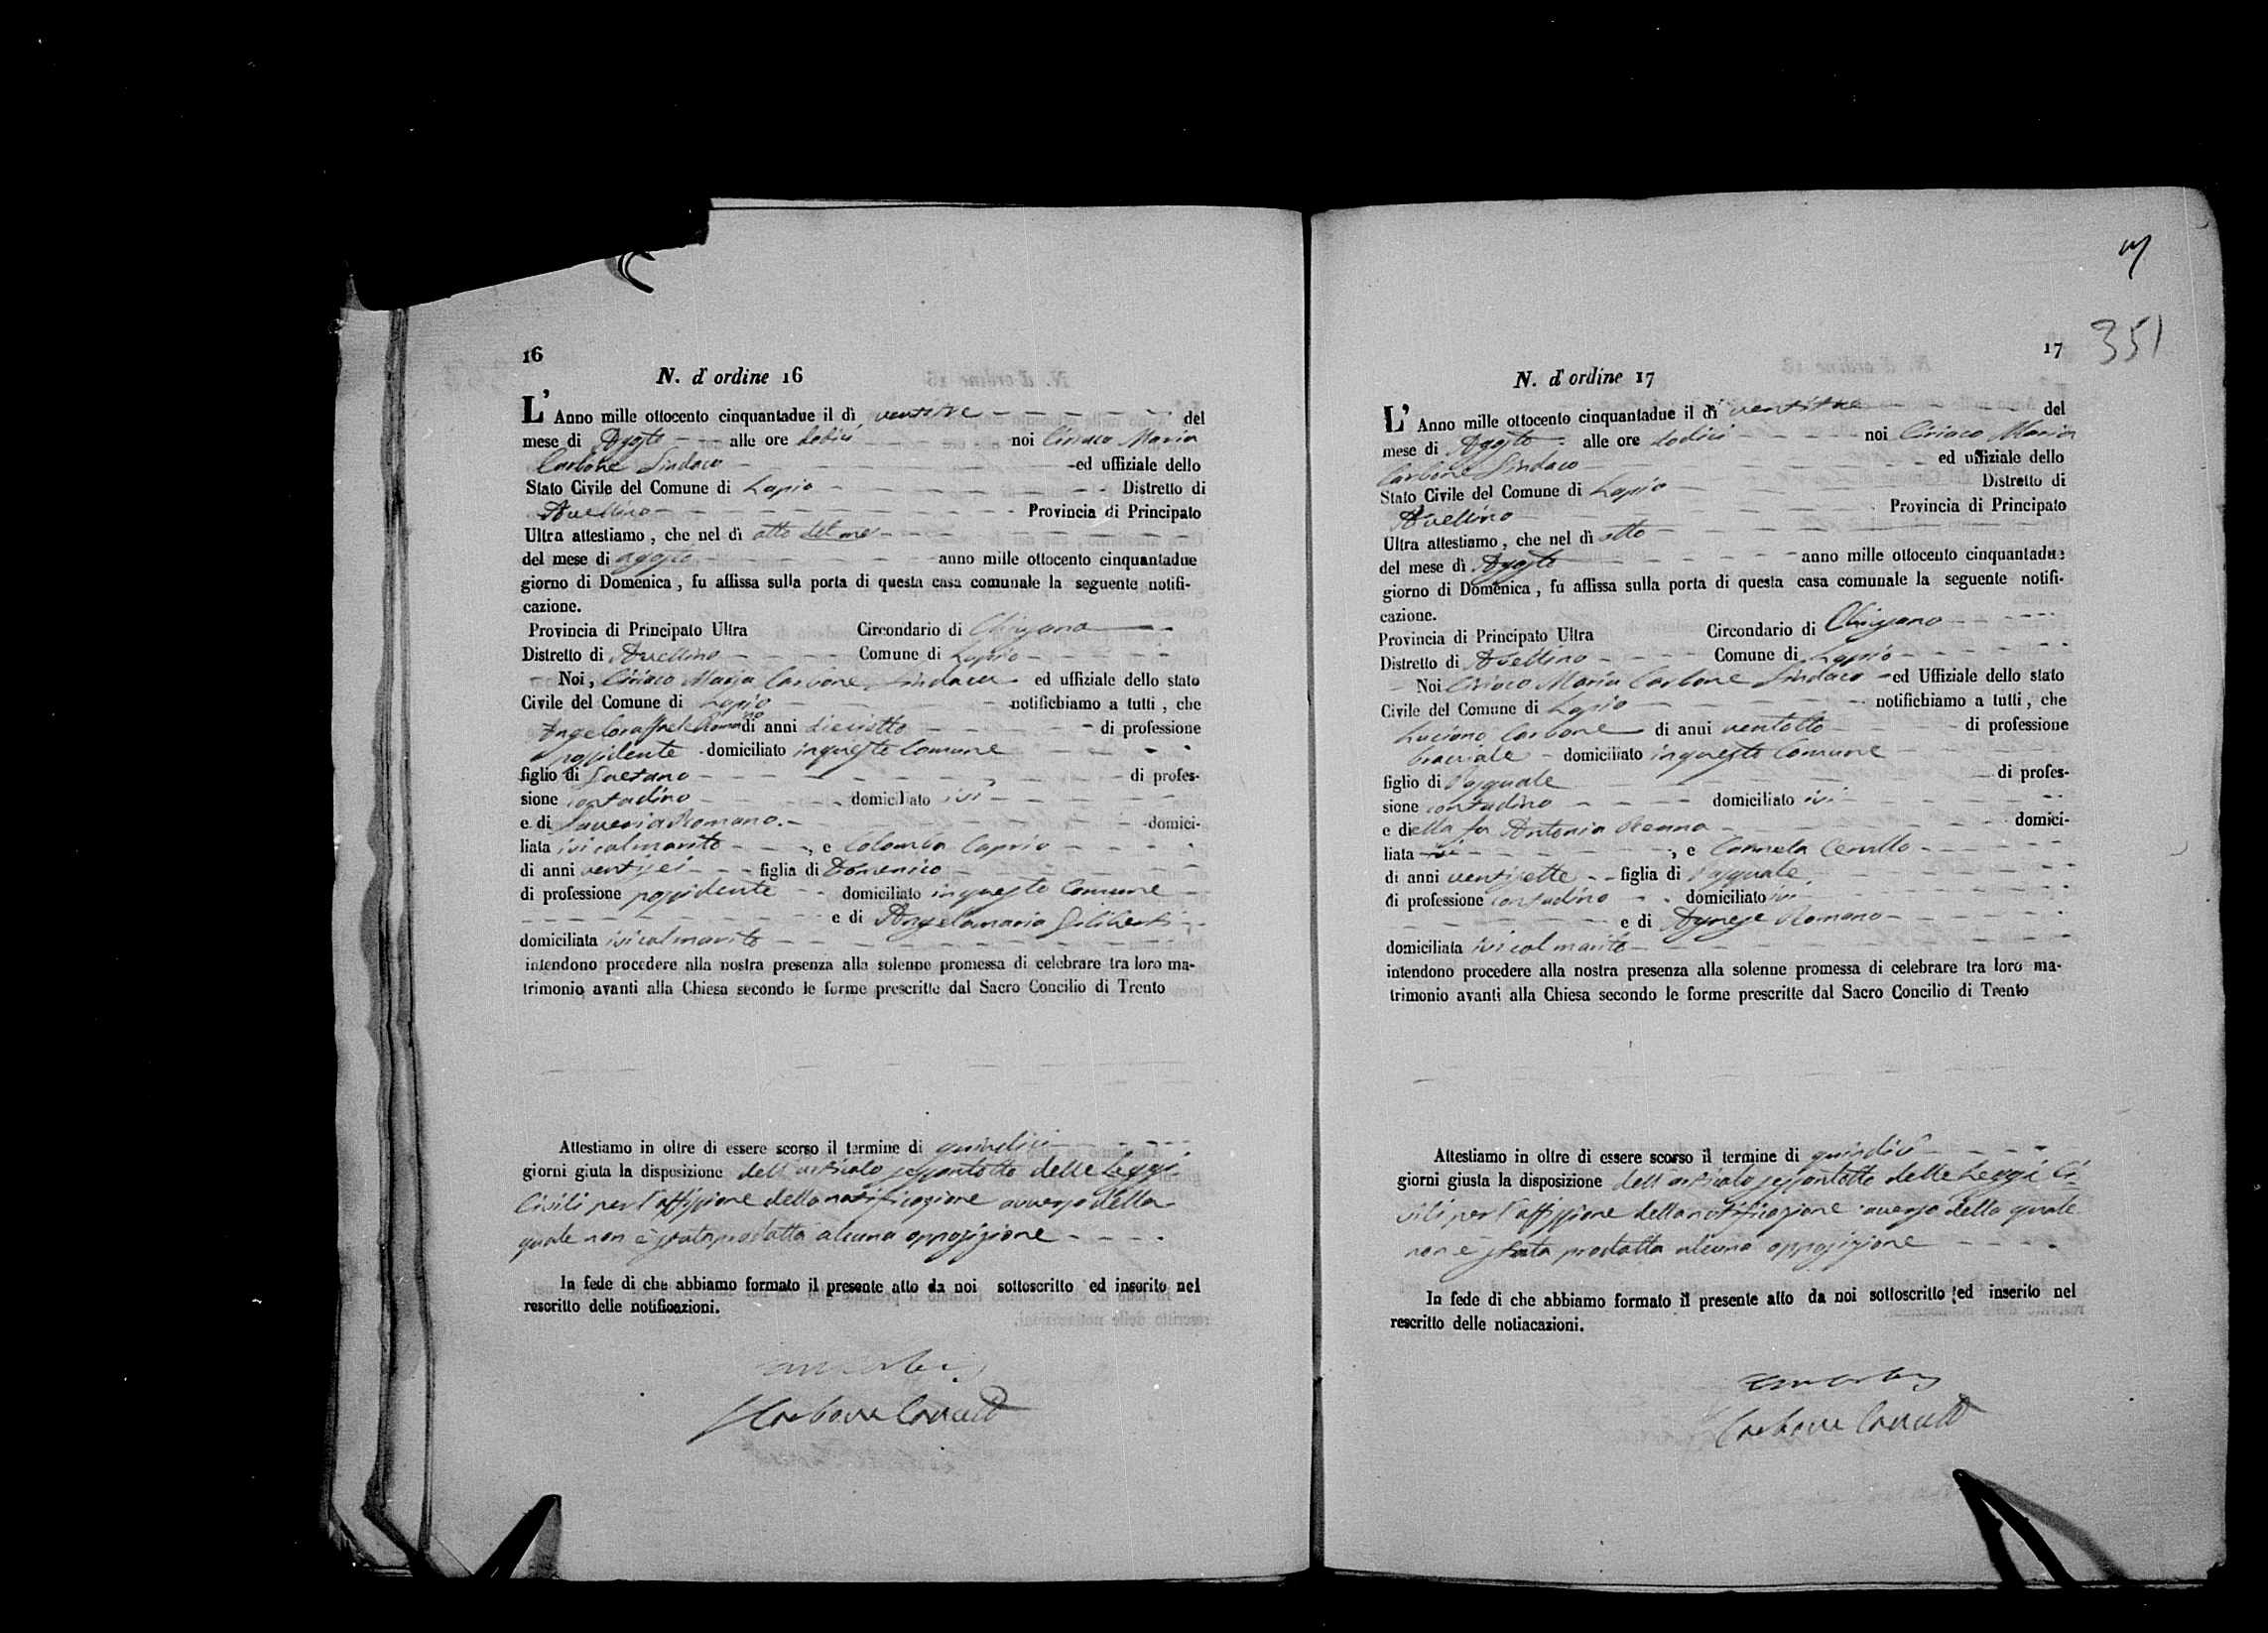 16
N. d'ordine 16
L'Anno mille ottocento cinquantadue il dì ventitre del
mese di Agosto alle ore dodici noi Ciriaco Maria
Carbone Sindaco ed uffiziale dello
Stato Civile del Comune di Lapio Distretto di
Avellino Provincia di Principato
Ultra attestiamo, che nel dì otto del mes
del mese di agosto anno mille ottocento cinquantadue
giorno di Domenica, fu affissa sulla porta di questa casa comunale la seguente notifi-
cazione.
Provincia di Principato Ultra Circondario di Chiusano
Distretto di Avellino Comune di Lapio
Noi, Ciriaco Maria Carbone Sindaco ed uffiziale dello stato
Civile del Comune di Lapio notifichiamo a tutti, che
Angeloraffaele Romano di anni dieciotto di professione
possidente domiciliato in questo Comune
figlio di Gaetano di profes-
sione contadino domiciliato ivi
e di Saveria Romano domici-
liata ivi col marito, e Colomba Caprio
di anni ventisei figlia di Domenico
di professione possidente domiciliato in questo Comune
e di Angelamaria Giliberti
domiciliata ivi col marito
intendono procedere alla nostra presenza alla solenne promessa di celebrare tra loro ma-
trimonio avanti alla Chiesa secondo le forme prescritte dal Sacro Concilio di Trento
Attestiamo in oltre di essere scorso il termine di quindici
giorni giuta la disposizione dell'articolo sessantotto delle Leggi
Civili per l'affissione della notificazione avverso della
quale non è stata prodotta alcuna opposizione
In fede di che abbiamo formato il presente atto da noi sottoscritto ed inserito nel
rescritto delle notificazioni.
Carbone
17
351
N. d'ordine 17
L'Anno mille ottocento cinquantadue il dì ventitre del
mese di Agosto alle ore dodici noi Ciriaco Maria
Carbone Sindaco ed uffiziale dello
Stato Civile del Comune di Lapio Distretto di
Avellino Provincia di Principato
Ultra attestiamo, che nel dì otto
del mese di Agosto anno mille ottocento cinquantadue
giorno di Domenica, fu affissa sulla porta di questa casa comunale la seguente notifi-
cazione.
Provincia di Principato Ultra Circondario di Chiusano
Distretto di Avellino Comune di Lapio
Noi Ciriaco Maria Carbone Sindaco ed Uffiziale dello stato
Civile del Comune di Lapio notifichiamo a tutti, che
Luciano Carbone di anni ventotto di professione
bracciale domiciliato in questo Comune
figlio di Pasquale di profes-
sione contadino domiciliato ivi
e di ella fu Antonia Reanna domici-
liata ivi, e Carmela Cerullo
di anni ventisette figlia di Pasquale
di professione contadino domiciliato ivi
e di Agnese Romano
domiciliata ivi col marito
intendono procedere alla nostra presenza alla solenne promessa di celebrare tra loro ma-
trimonio avanti alla Chiesa secondo le forme prescritte dal Sacro Concilio di Trento
Attestiamo in oltre di essere scorso il termine di quindici
giorni giusta la disposizione dell'articolo sessantotto delle Leggi Ci-
vili per l'affissione della notificazione avverso della quale
non è stata prodotta alcuna opposizione
In fede di che abbiamo formato il presente atto da noi sottoscritto ed inserito nel
rescritto delle notiacazioni.
Carbone